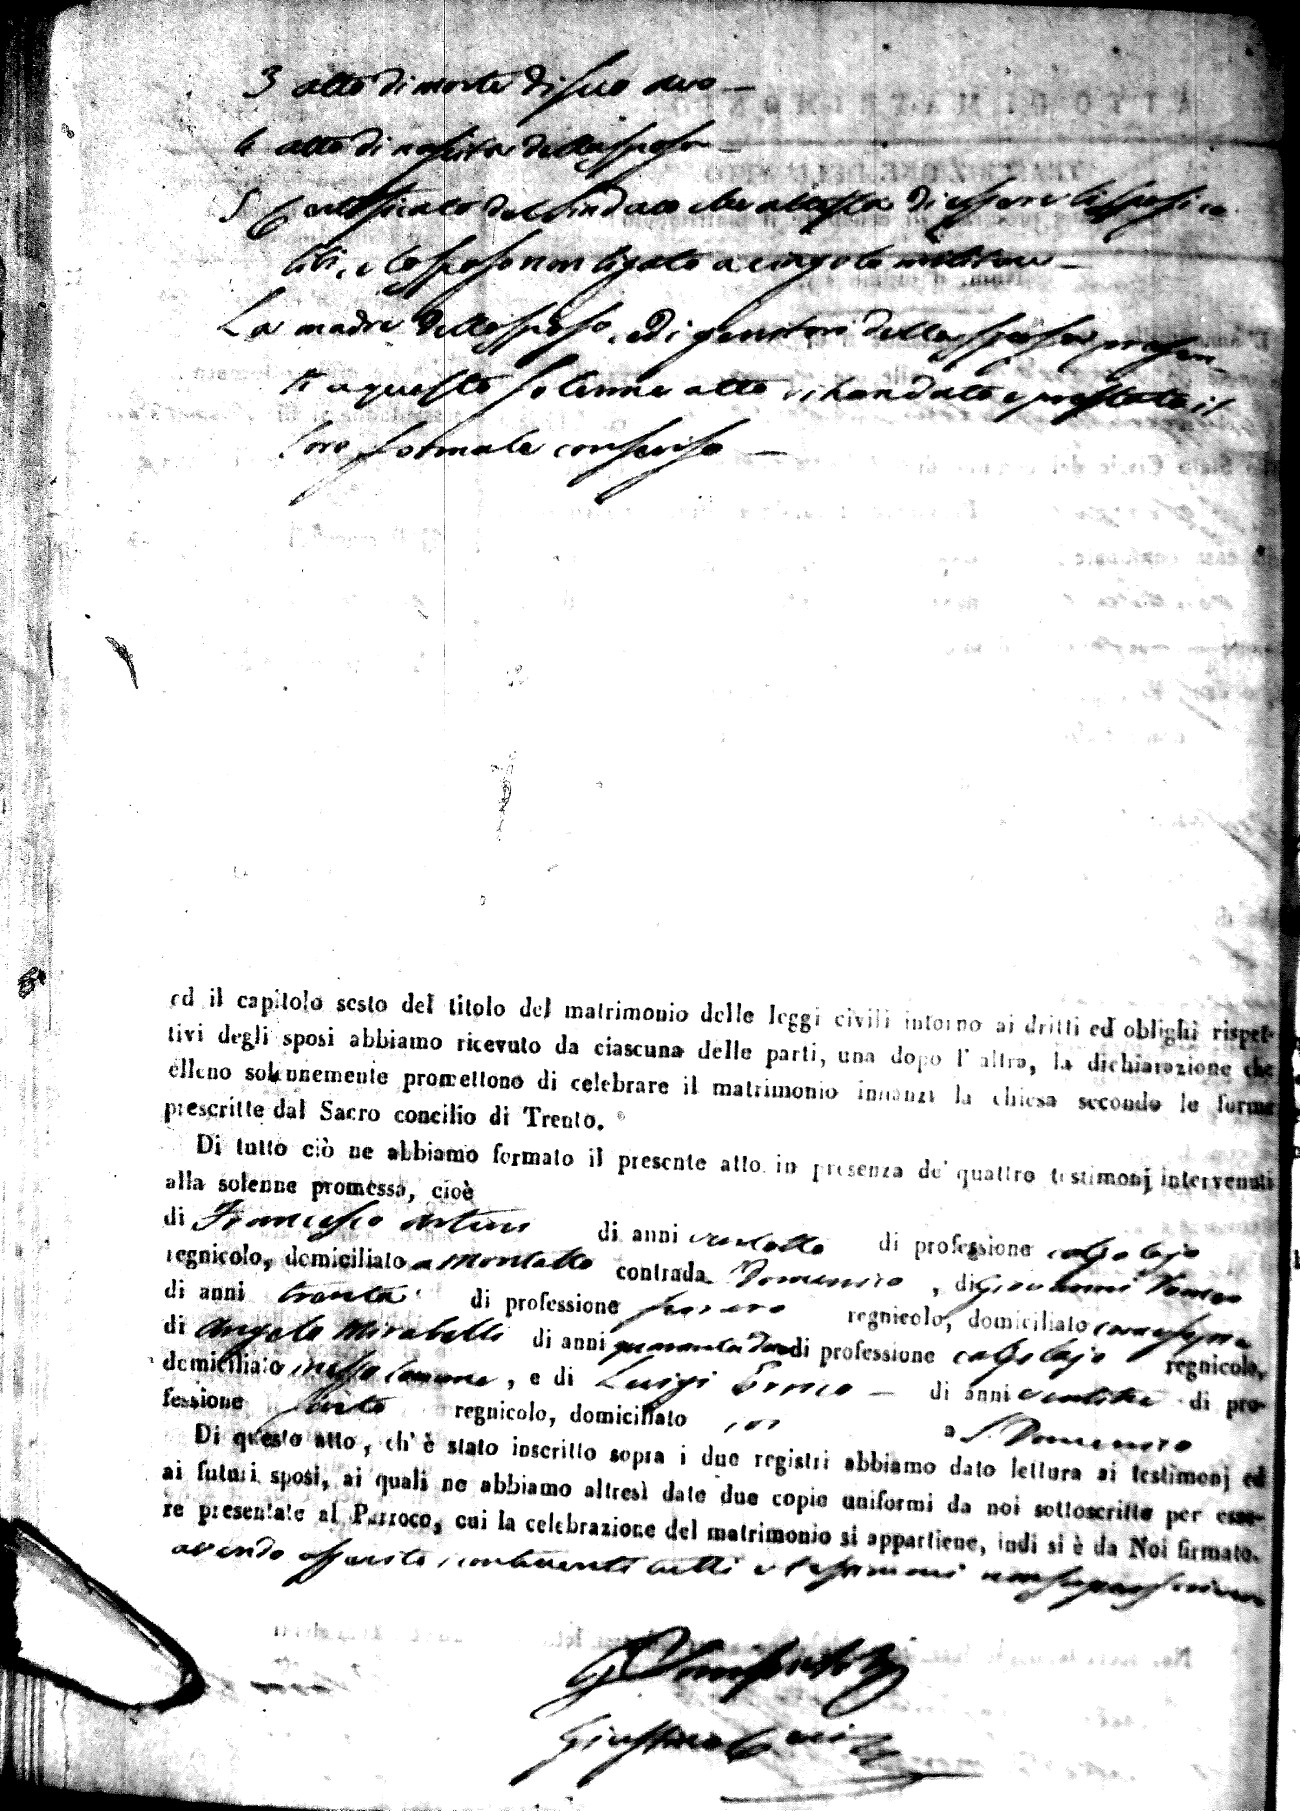 3 atto di morte di suo avo —
4 atto di nascita della sposa —
5 Certificato del Sindaco che attesta di essere li sposi ce
libi, e lo sposo non ligato a cingolo militare —
La madre dello sposo, ed i genitori della sposa presen
ti a questo solenne atto vi han dato e prestato il
loro formale consenso —
ed il capitolo sesto del titolo del matrimonio delle leggi civili intorno ai dritti ed oblighi rispet-
tivi degli sposi abbiamo ricevuto da ciascuna delle parti, una dopo l'altra, la dichiarazione che
elleno solennemente promettono di celebrare il matrimonio innanzi la chiesa secondo le forme
prescritte dal Sacro concilio di Trento.
Di tutto ciò ne abbiamo formato il presente atto in presenza de' quattro testimonj intervenuti
alla solenne promessa, cioè
di Francesco Arturi di anni ventotto di professione calzolajo
regnicolo, domiciliato a Montalto contrada S. Domenico, di Giovanni
di anni trenta di professione regnicolo, domiciliato
di Angelo Mirabelli di anni quarantadue di professione calzolajo regnicolo,
domiciliato in esso Comune, e di Luigi — di anni ventitre di pro-
fessione sarto regnicolo, domiciliato ivi a S. Domenico
Di questo atto, ch'è stato inscritto sopra i due registri abbiamo dato lettura ai testimonj ed
ai futuri sposi, ai quali ne abbiamo altresì date due copie uniformi da noi sottoscritte per esse-
re presentate al Parroco, cui la celebrazione del matrimonio si appartiene, indi si è da Noi firmato.
avendo asserito i contraenti tutti e testimoni non saper scrivere
Giustino